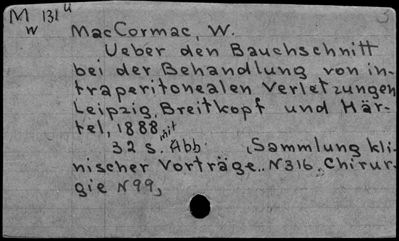 M 131 u
w
MacCormac, W.
Ueber den Bauchschnitt
bei der Behandlung von in-
traperitonealen Verletzungen
Leipzig, Breitkopf und Här-
tel, 1888
32 s. mit Abb. „Sammlung kli-
nischer Vorträge„ N316 „Chirur-
gie N99„